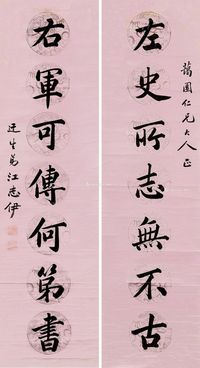 藹園仁兄大人正
左史所志無不古
右軍可傳何第書
迋生弟江志伊